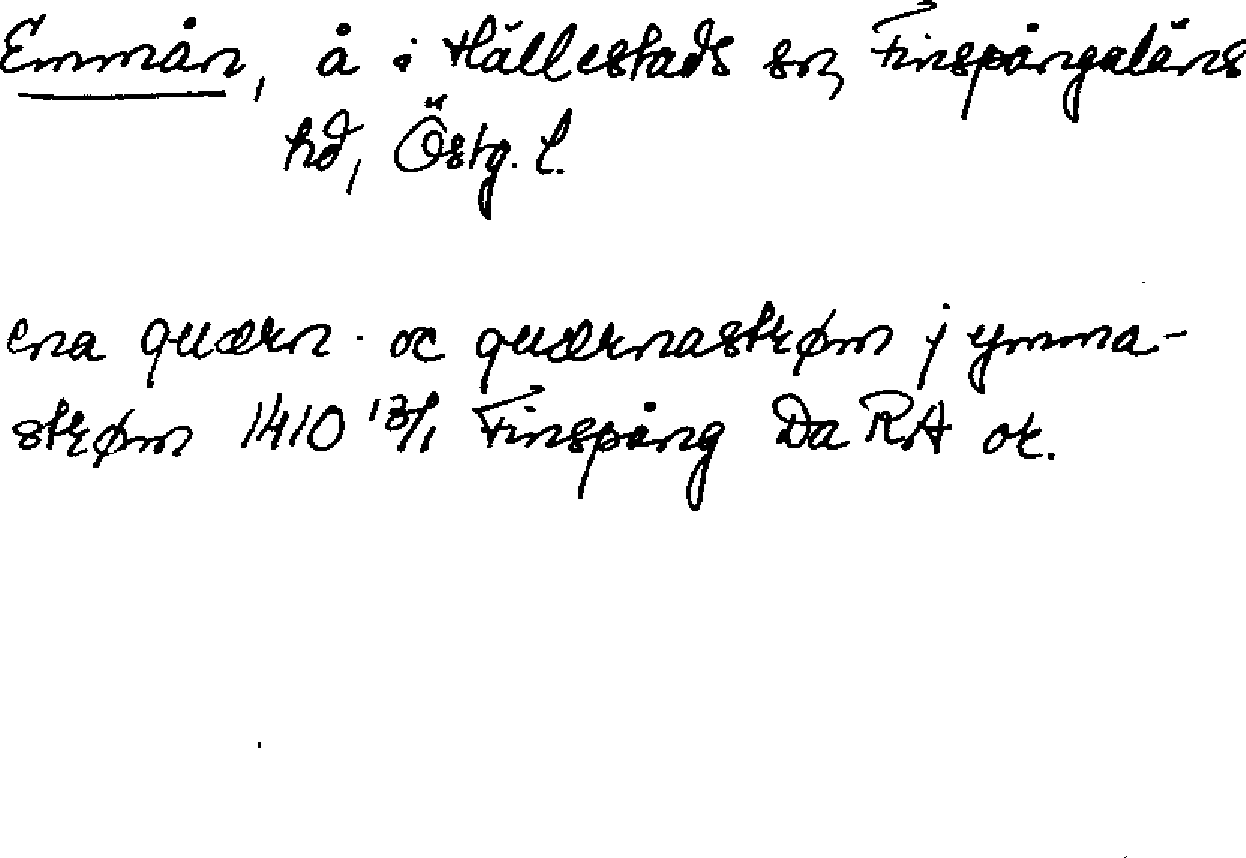 Emmån, å i Hällestads sn, Finspångaläns
hd, Östg. l.
ena quærn oc quærnastrøm j ymma-
strøm 1410 13/1 Finspång Da RA or.